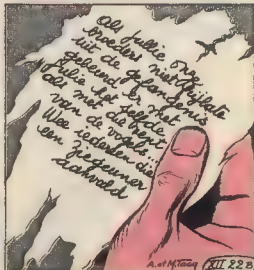 Als jullie onze
broeders niet vrijlate
uit de gevangenis
gebeurt er met
jullie het zelfde
als met die hoort
van de vogel...
Wee iedereen die
een zigeuner
aanvald
A. et M. Tacq
XII 22B